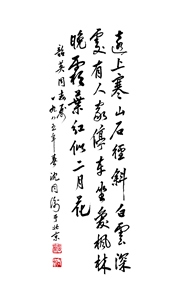 遠上寒山石徑斜白雲深
處有人家停車坐愛楓林
晚霜葉紅似二月花
韶英同志属
一九八五年春沈同衡于北京